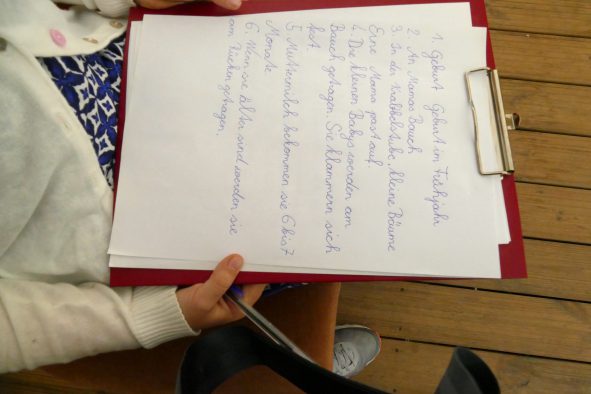 1. Geburt Geburt im Frühjahr
2. An Mamas Bauch
3. In der Krabbelstube, kleine Bäume
Eine Mama passt auf
4. Die kleinen Babys werden am
Bauch getragen. Sie klammern sich
fest
5 Muttermilch bekommen sie 6 bis 7
Monate
6. Wenn sie älter sind werden sie
am Rücken getragen.